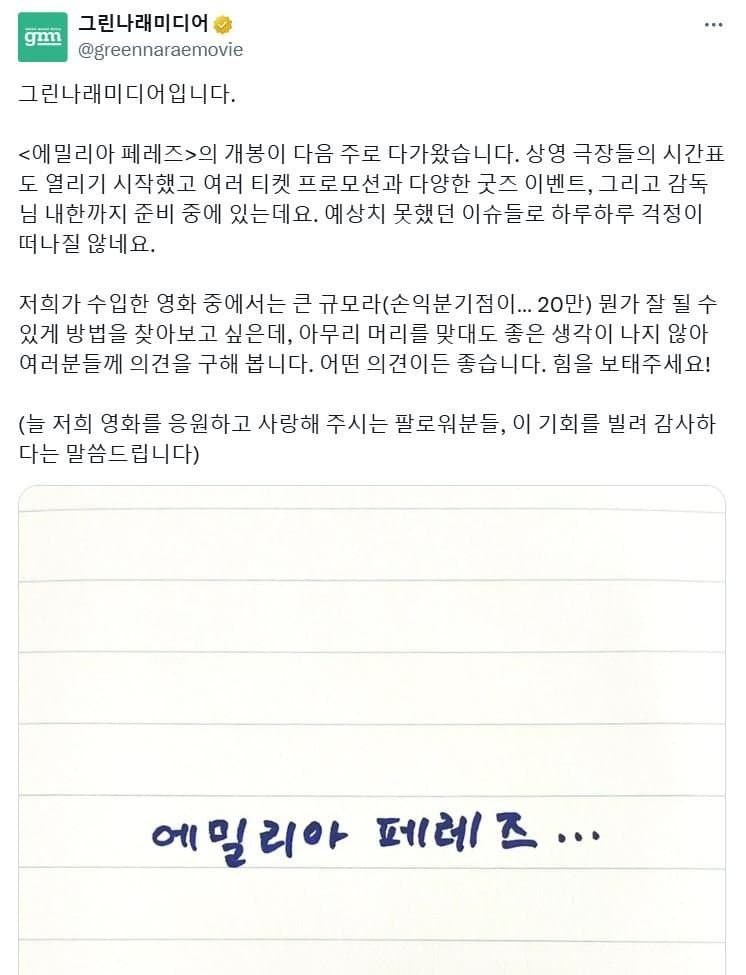 gnm
그린나래미디어
@greennaraemovie
그린나래미디어입니다.
<에밀리아 페레즈>의 개봉이 다음 주로 다가왔습니다. 상영 극장들의 시간표
도 열리기 시작했고 여러 티켓 프로모션과 다양한 굿즈 이벤트, 그리고 감독
님 내한까지 준비 중에 있는데요. 예상치 못했던 이슈들로 하루하루 걱정이
떠나질 않네요.
저희가 수입한 영화 중에서는 큰 규모라(손익분기점이... 20만) 뭔가 잘 될 수
있게 방법을 찾아보고 싶은데, 아무리 머리를 맞대도 좋은 생각이 나지 않아
여러분들께 의견을 구해 봅니다. 어떤 의견이든 좋습니다. 힘을 보태주세요!
(늘 저희 영화를 응원하고 사랑해 주시는 팔로워분들, 이 기회를 빌려 감사하
다는 말씀드립니다)
에밀리아 페레즈...